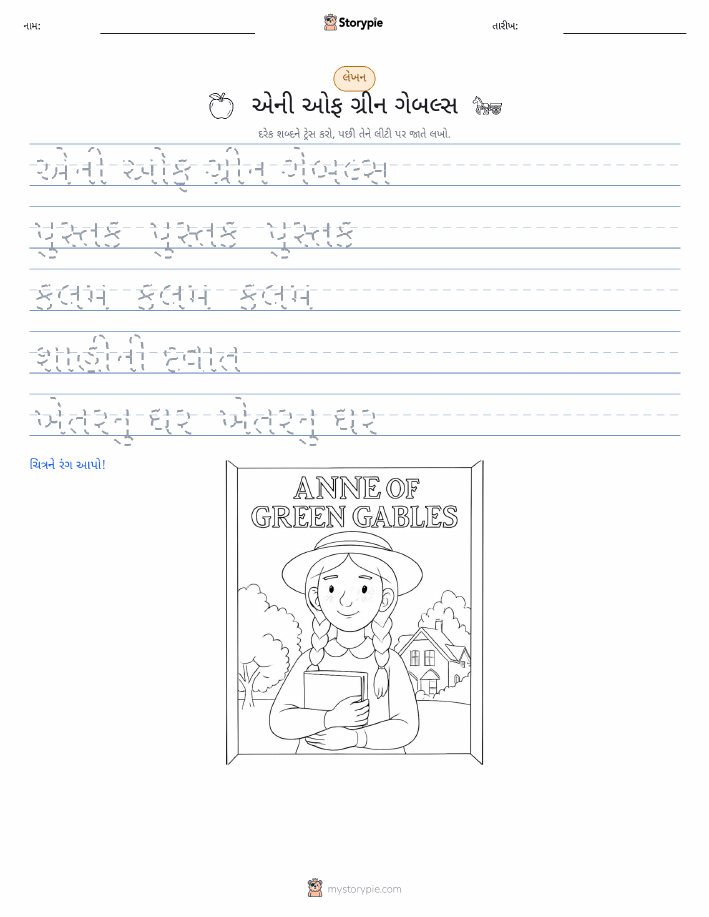 નામ:
Storypie
તારીખ:
લેખન
એની ઓફ ગ્રીન ગેબલ્સ
દરેક શબ્દને ટ્રેસ કરો, પછી તેને લીટી પર જાતે લખો.
એની ઓફ ગ્રીન ગેબલ્સ
પુસ્તક પુસ્તક પુસ્તક
કલમ કલમ કલમ
શાહીની દવાત
ખેતરનુ ઘર ખેતરનુ ઘર
ચિત્રને રંગ આપો!
ANNE OF
GREEN GABLES
mystorypie.com